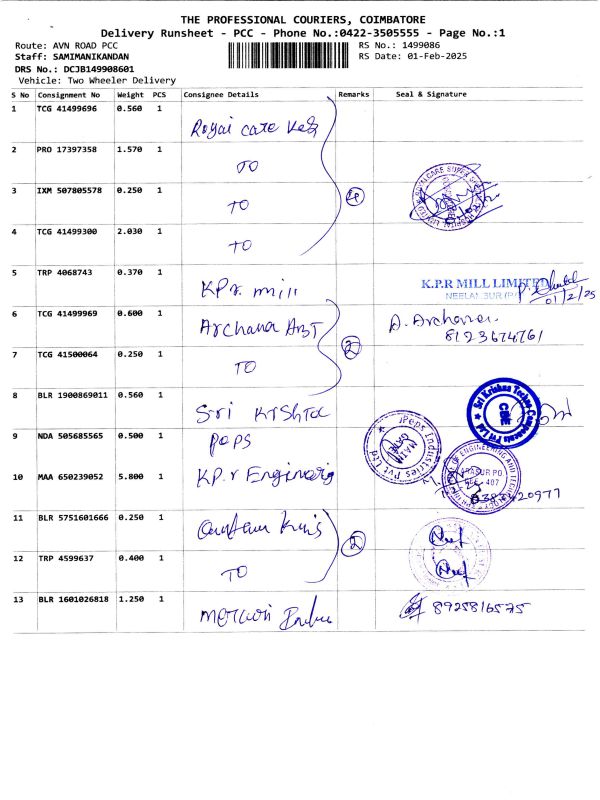 THE PROFESSIONAL COURIERS, COIMBATORE
Delivery Runsheet - PCC - Phone No.:0422-3505555 - Page No.:1
Route: AVN ROAD PCC
RS No.: 1499086
Staff: SAMIMANIKANDAN
RS Date: 01-Feb-2025
DRS No.: DCJB149908601
Vehicle: Two Wheeler Delivery
S No Consignment No Weight PCS Consignee Details Remarks Seal & Signature
1 TCG 41499696 0.560 1
Royal care
2 PRO 17397358 1.570 1
TO
3 IXM 507805578 0.250 1
TO 4
4 TCG 41499300 2.030 1
TO
5 TRP 4068743 0.370 1
KPr. mill K.P.R MILL LIMITED
01/2/25
6 TCG 41499969 0.600 1
Archana A. Archana
8123674761
7 TCG 41500064 0.250 1
TO 2
8 BLR 1900869011 0.560 1
Sri
Sri Krishna Techno Components Pvt Ltd
9 NDA 505685565 0.500 1
Peps
Peps Industries Pvt Ltd
MAIN
10 MAA 650239052 5.800 1
KP.r Engineerig
11 BLR 5751601666 0.250 1
2
12 TRP 4599637 0.400 1
TO
13 BLR 1601026818 1.250 1
8925816575